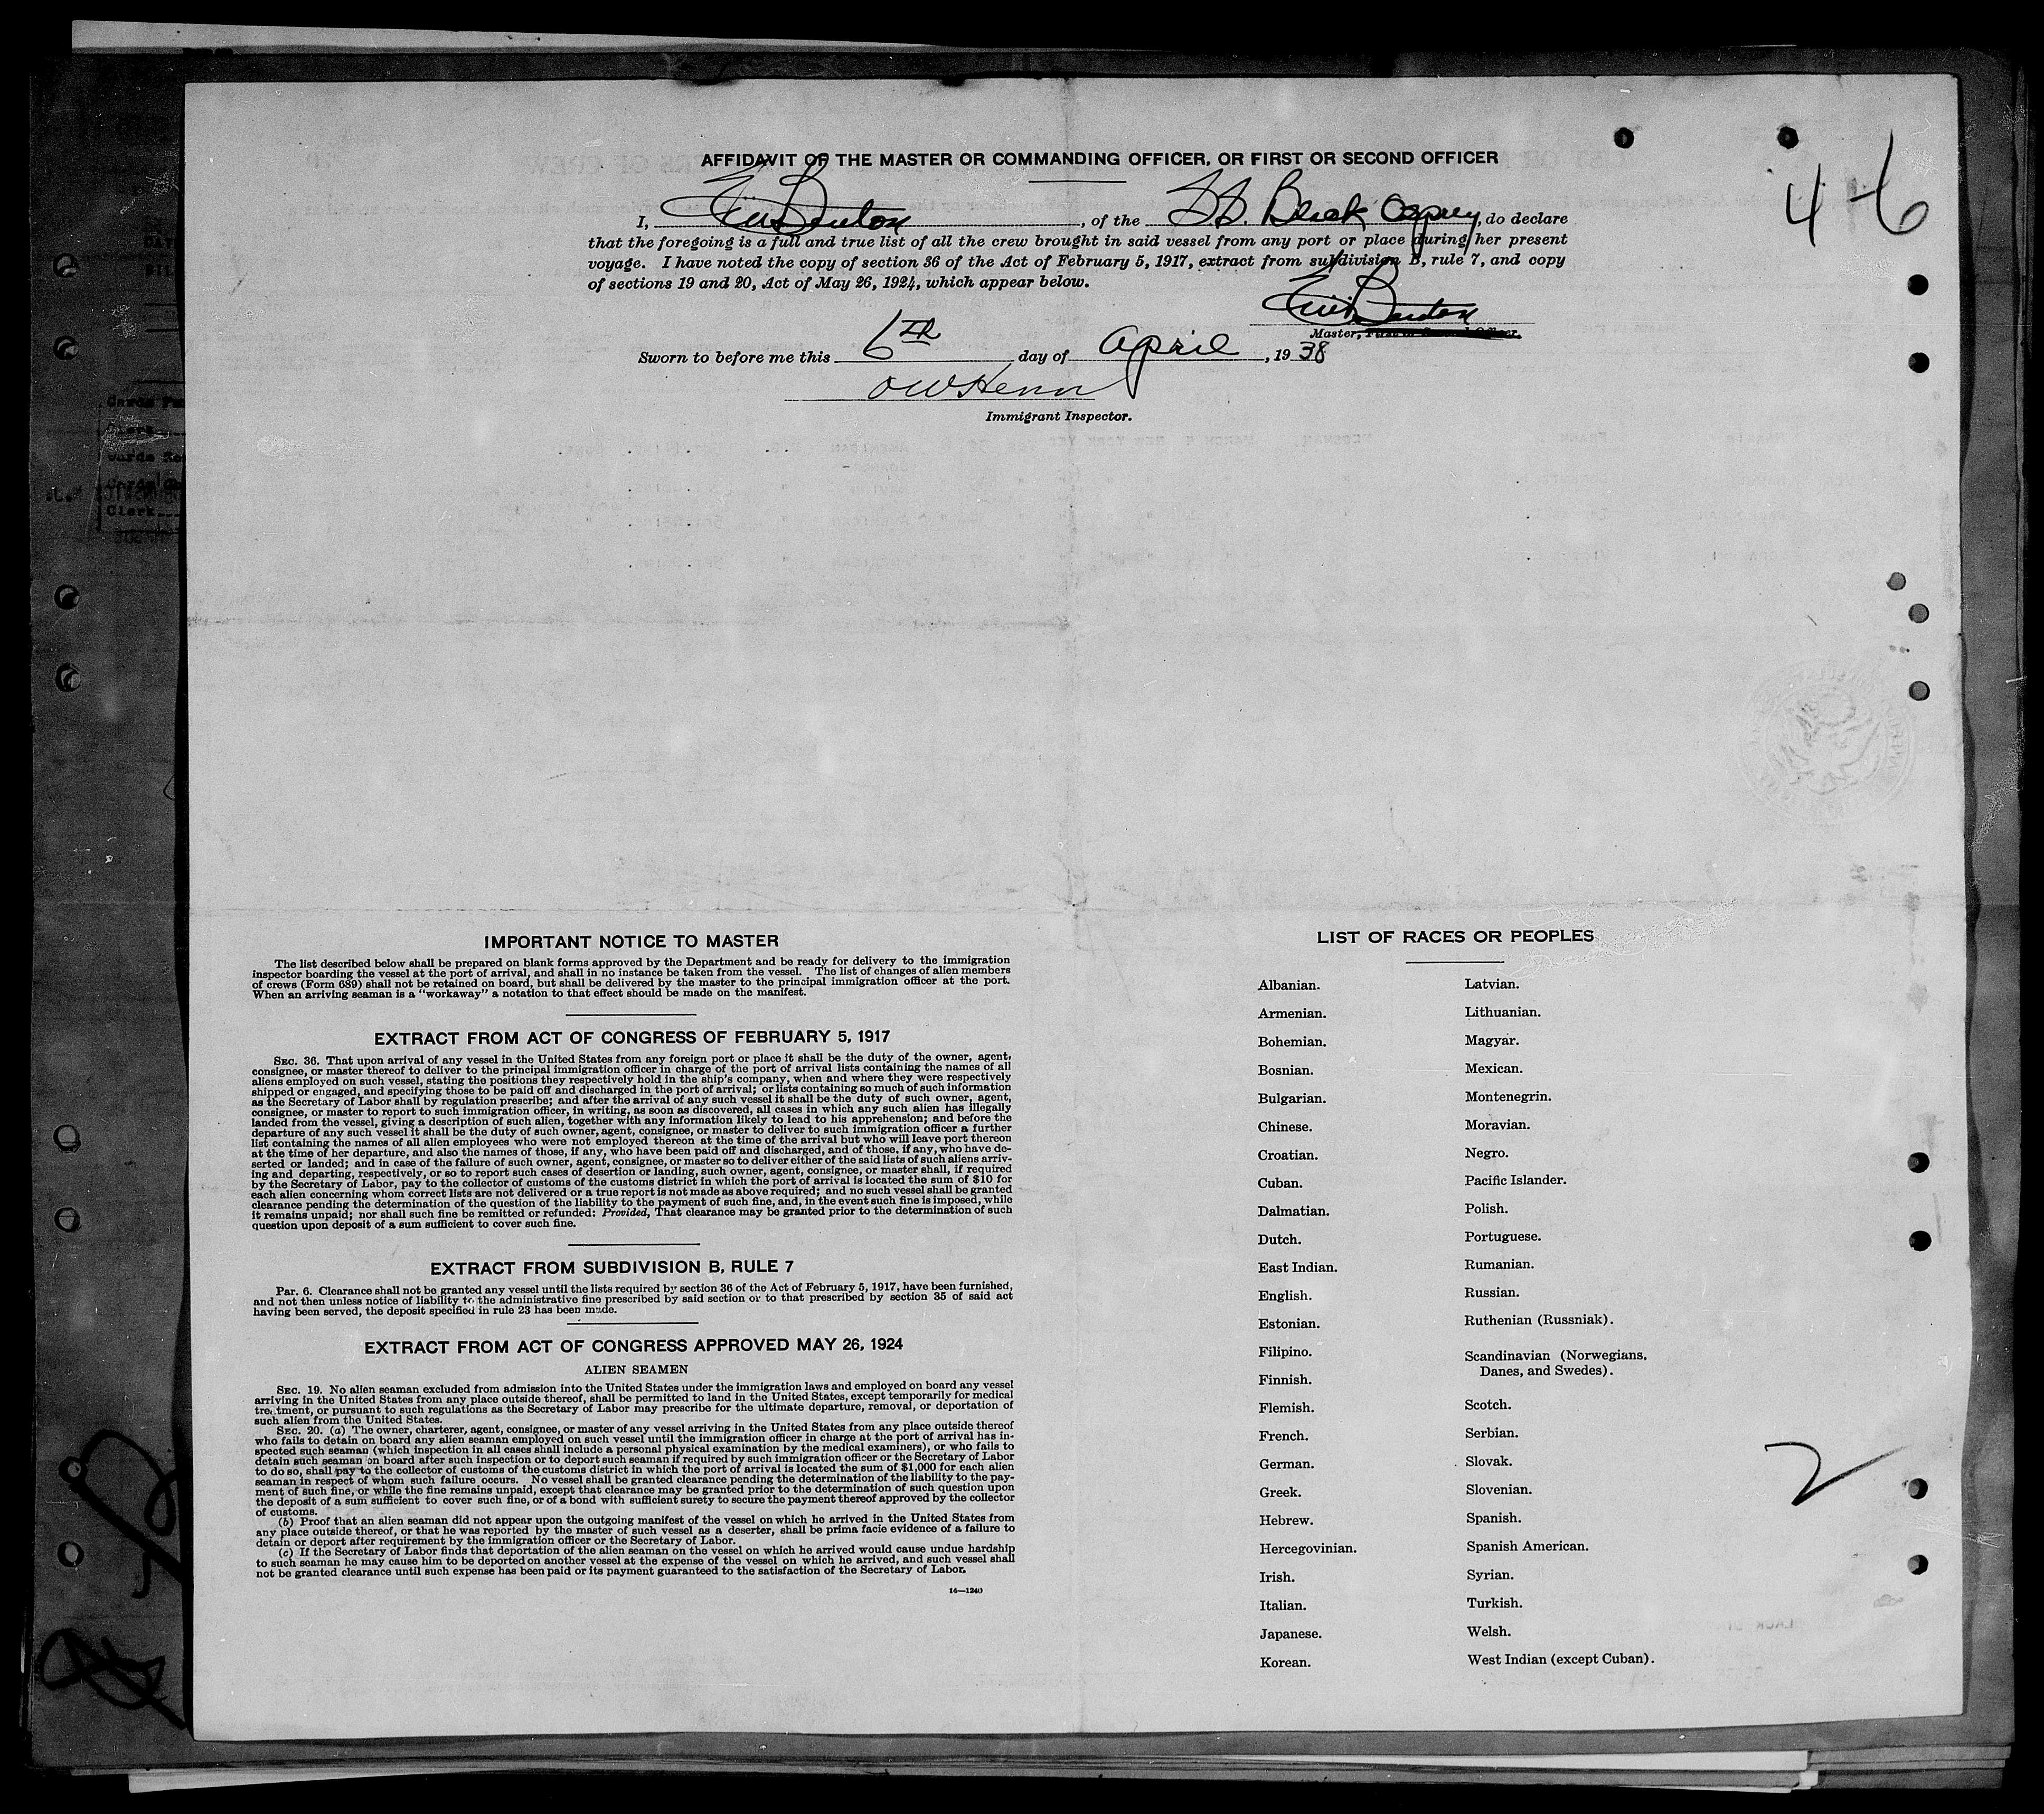 AFFIDAVIT OF THE MASTER OR COMMANDING OFFICER, OR FIRST OR SECOND OFFICER
4-6
I, Benton, of the SS. Black Osprey, do declare
that the foregoing is a full and true list of all the crew brought in said vessel from any port or place during her present
voyage. I have noted the copy of section 36 of the Act of February 5, 1917, extract from subdivision B, rule 7, and copy
of sections 19 and 20, Act of May 26, 1924, which appear below.
Benton
Master, First or Second Officer.
Sworn to before me this 6th day of April, 1938
OW Henn
Immigrant Inspector.
IMPORTANT NOTICE TO MASTER
The list described below shall be prepared on blank forms approved by the Department and be ready for delivery to the immigration
inspector boarding the vessel at the port of arrival, and shall in no instance be taken from the vessel. The list of changes of alien members
of crews (Form 689) shall not be retained on board, but shall be delivered by the master to the principal immigration officer at the port.
When an arriving seaman is a "workaway" a notation to that effect should be made on the manifest.
EXTRACT FROM ACT OF CONGRESS OF FEBRUARY 5, 1917
SEC. 36. That upon arrival of any vessel in the United States from any foreign port or place it shall be the duty of the owner, agent,
consignee, or master thereof to deliver to the principal immigration officer in charge of the port of arrival lists containing the names of all
aliens employed on such vessel, stating the positions they respectively hold in the ship's company, when and where they were respectively
shipped or engaged, and specifying those to be paid off and discharged in the port of arrival; or lists containing so much of such information
as the Secretary of Labor shall by regulation prescribe; and after the arrival of any such vessel it shall be the duty of such owner, agent,
consignee, or master to report to such immigration officer, in writing, as soon as discovered, all cases in which any such alien has illegally
landed from the vessel, giving a description of such alien, together with any information likely to lead to his apprehension; and before the
departure of any such vessel it shall be the duty of such owner, agent, consignee, or master to deliver to such immigration officer a further
list containing the names of all alien employees who were not employed thereon at the time of the arrival but who will leave port thereon
at the time of her departure, and also the names of those, if any, who have been paid off and discharged, and of those, if any, who have de-
serted or landed; and in case of the failure of such owner, agent, consignee, or master so to deliver either of the said lists of such aliens arriv-
ing and departing, respectively, or so to report such cases of desertion or landing, such owner, agent, consignee, or master shall, if required
by the Secretary of Labor, pay to the collector of customs of the customs district in which the port of arrival is located the sum of $10 for
each alien concerning whom correct lists are not delivered or a true report is not made as above required; and no such vessel shall be granted
clearance pending the determination of the question of the liability to the payment of such fine, and, in the event such fine is imposed, while
it remains unpaid; nor shall such fine be remitted or refunded: Provided, That clearance may be granted prior to the determination of such
question upon deposit of a sum sufficient to cover such fine.
EXTRACT FROM SUBDIVISION B, RULE 7
Par. 6. Clearance shall not be granted any vessel until the lists required by section 36 of the Act of February 5, 1917, have been furnished,
and not then unless notice of liability to the administrative fine prescribed by said section or to that prescribed by section 35 of said act
having been served, the deposit specified in rule 23 has been made.
EXTRACT FROM ACT OF CONGRESS APPROVED MAY 26, 1924
ALIEN SEAMEN
SEC. 19. No alien seaman excluded from admission into the United States under the immigration laws and employed on board any vessel
arriving in the United States from any place outside thereof, shall be permitted to land in the United States, except temporarily for medical
treatment, or pursuant to such regulations as the Secretary of Labor may prescribe for the ultimate departure, removal, or deportation of
such alien from the United States.
SEC. 20. (a) The owner, charterer, agent, consignee, or master of any vessel arriving in the United States from any place outside thereof
who fails to detain on board any alien seaman employed on such vessel until the immigration officer in charge at the port of arrival has in-
spected such seaman (which inspection in all cases shall include a personal physical examination by the medical examiners), or who fails to
detain such seaman on board after such inspection or to deport such seaman if required by such immigration officer or the Secretary of Labor
to do so, shall pay to the collector of customs of the customs district in which the port of arrival is located the sum of $1,000 for each alien
seaman in respect of whom such failure occurs. No vessel shall be granted clearance pending the determination of the liability to the pay-
ment of such fine, or while the fine remains unpaid, except that clearance may be granted prior to the determination of such question upon
the deposit of a sum sufficient to cover such fine, or of a bond with sufficient surety to secure the payment thereof approved by the collector
of customs.
(b) Proof that an alien seaman did not appear upon the outgoing manifest of the vessel on which he arrived in the United States from
any place outside thereof, or that he was reported by the master of such vessel as a deserter, shall be prima facie evidence of a failure to
detain or deport after requirement by the immigration officer or the Secretary of Labor.
(c) If the Secretary of Labor finds that deportation of the alien seaman on the vessel on which he arrived would cause undue hardship
to such seaman he may cause him to be deported on another vessel at the expense of the vessel on which he arrived, and such vessel shall
not be granted clearance until such expense has been paid or its payment guaranteed to the satisfaction of the Secretary of Labor.
14—1240
LIST OF RACES OR PEOPLES
Albanian.
Armenian.
Bohemian.
Bosnian.
Bulgarian.
Chinese.
Croatian.
Cuban.
Dalmatian.
Dutch.
East Indian.
English.
Estonian.
Filipino.
Finnish.
Flemish.
French.
German.
Greek.
Hebrew.
Hercegovinian.
Irish.
Italian.
Japanese.
Korean.
Latvian.
Lithuanian.
Magyar.
Mexican.
Montenegrin.
Moravian.
Negro.
Pacific Islander.
Polish.
Portuguese.
Rumanian.
Russian.
Ruthenian (Russniak).
Scandinavian (Norwegians,
Danes, and Swedes).
Scotch.
Serbian.
Slovak.
Slovenian.
Spanish.
Spanish American.
Syrian.
Turkish.
Welsh.
West Indian (except Cuban).
2